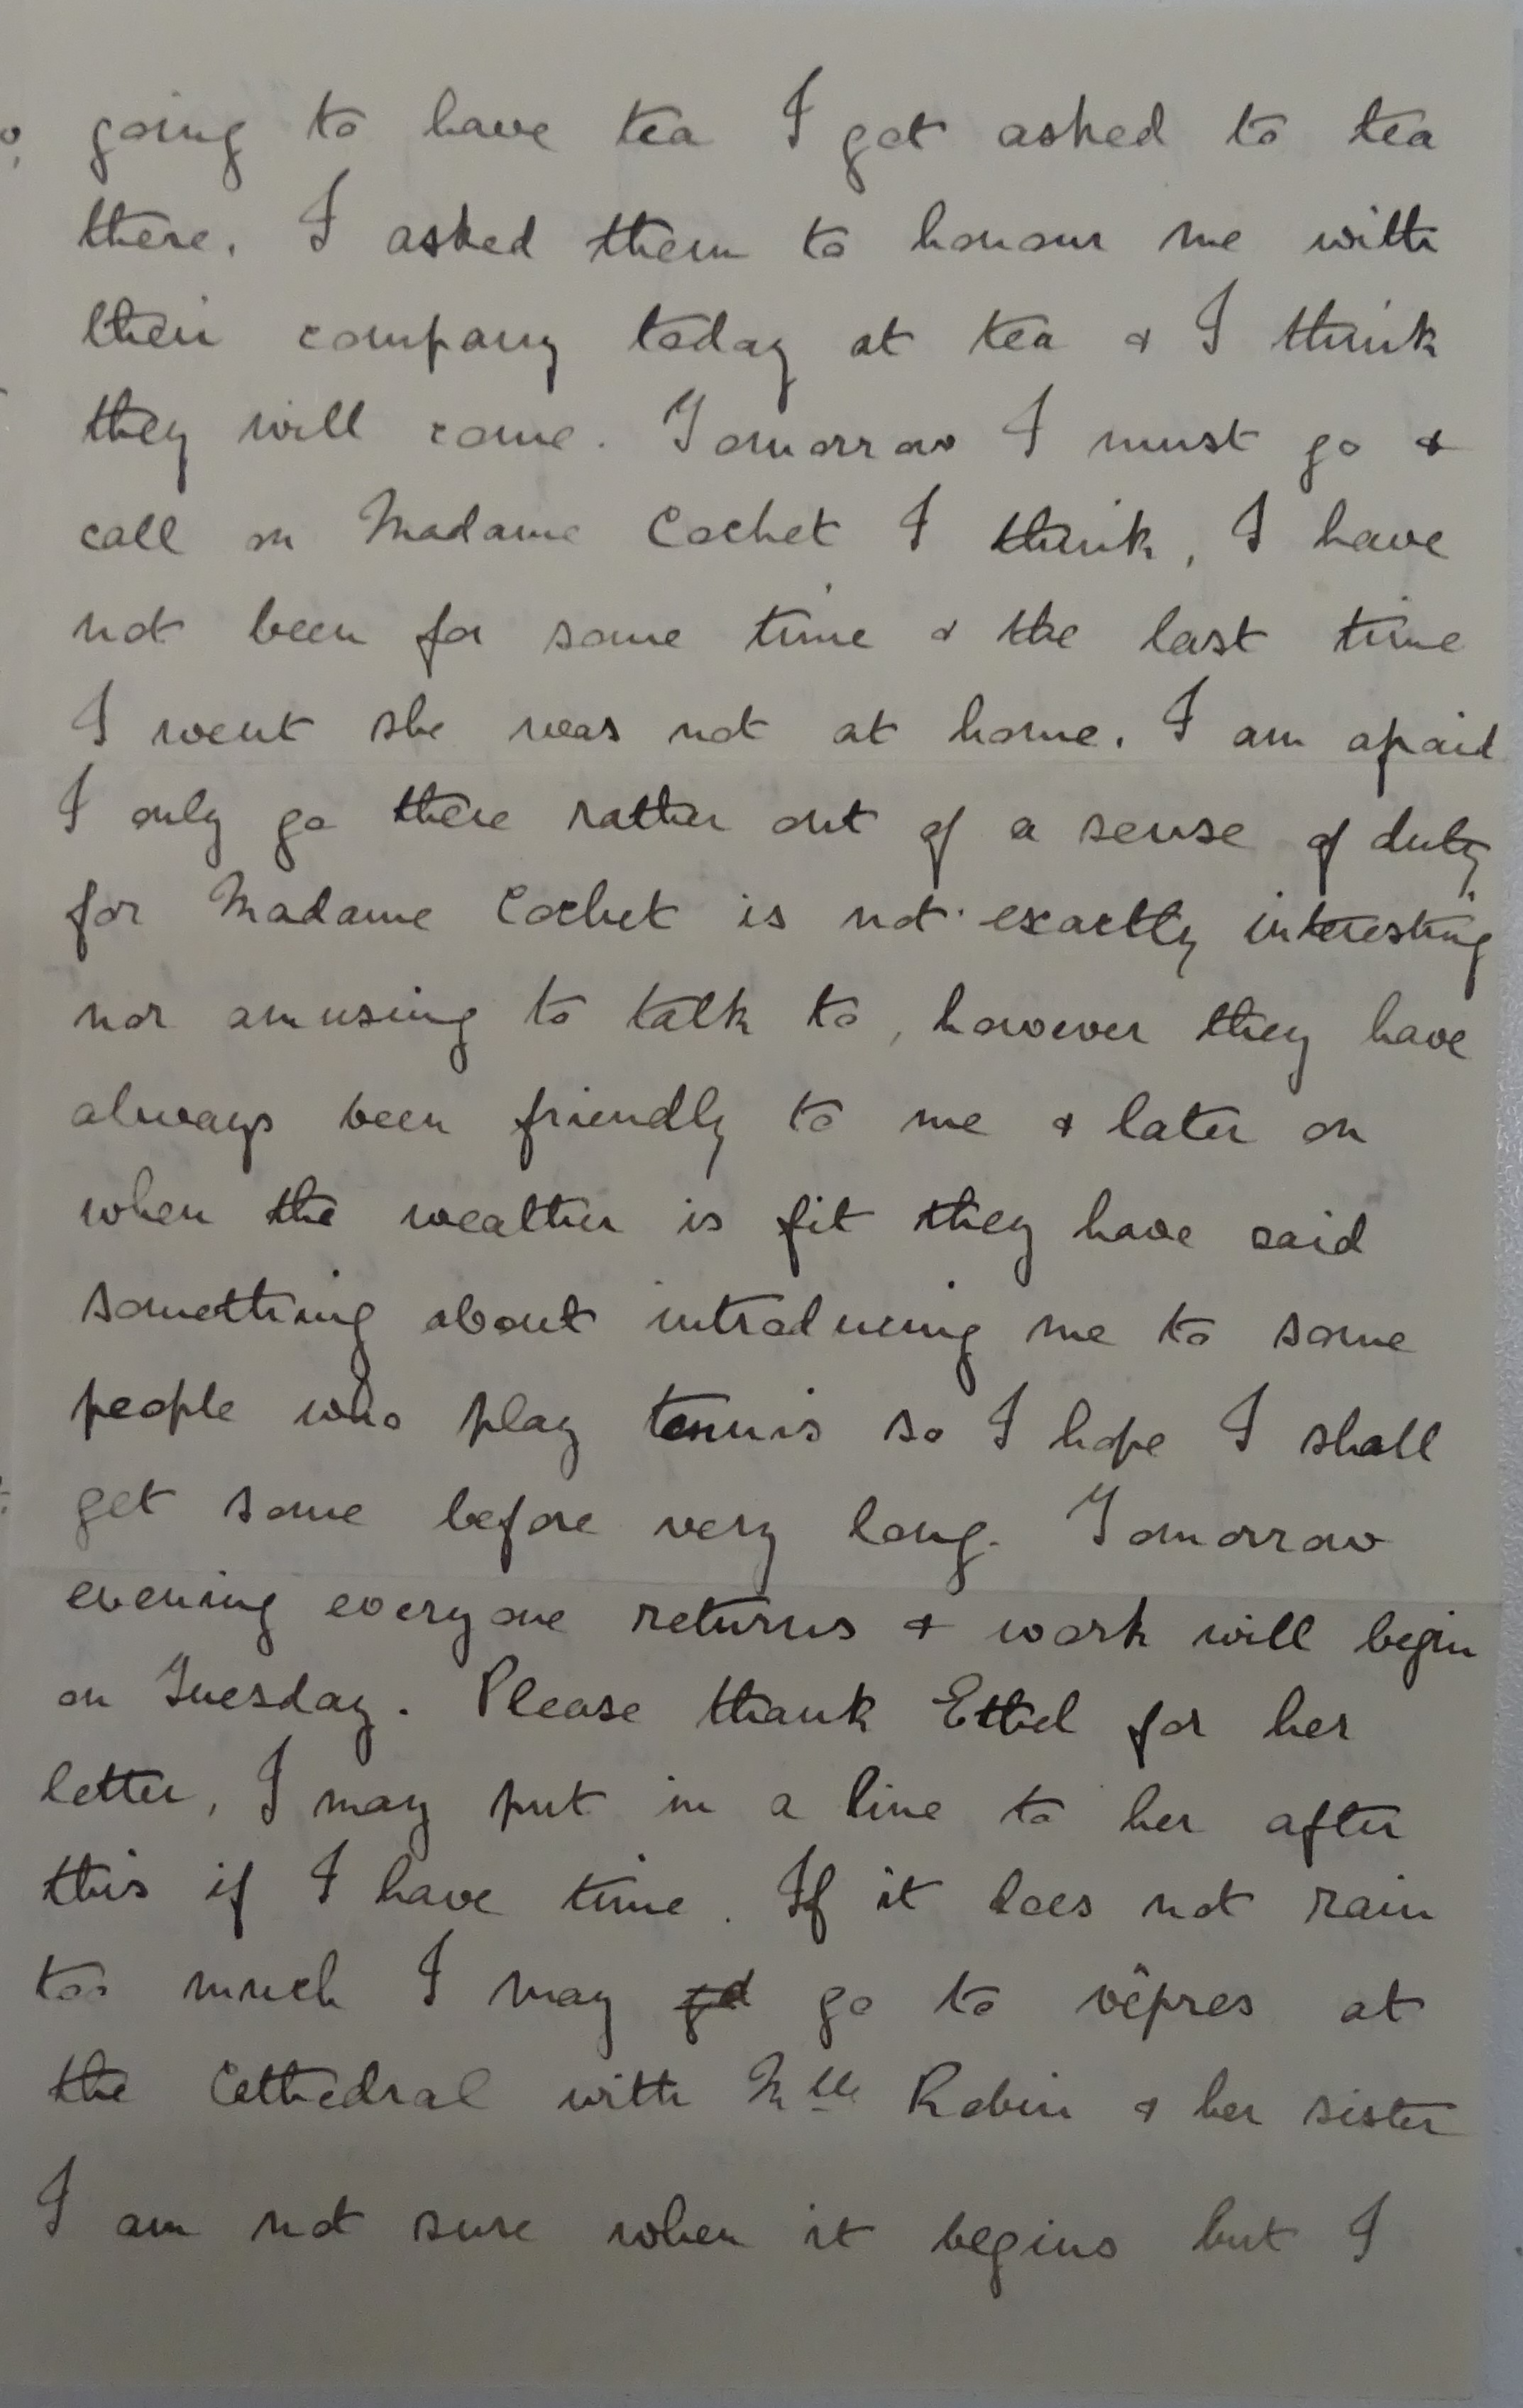 going to have tea I got asked to tea
there. I asked them to honour me with
their company today at tea & I think
they will come. Tomorrow I must go &
call on Madame Cochet I think, I have
not been for some time & the last time
I went she was not at home. I am afraid
I only go there rather out of a sense of duty,
for Madame Cochet is not exactly interesting
nor amusing to talk to, however they have
always been friendly to me & later on
when the weather is fit they have said
something about introducing me to some
people who play tennis so I hope I shall
get some before very long. Tomorrow
evening everyone returns & work will begin
on Tuesday. Please thank Ethel for her
letter, I may put in a line to her after
this if I have time. If it does not rain
too much I may go to vêpres at
the Cathedral with Mlle Robin & her sister
I am not sure when it begins but I